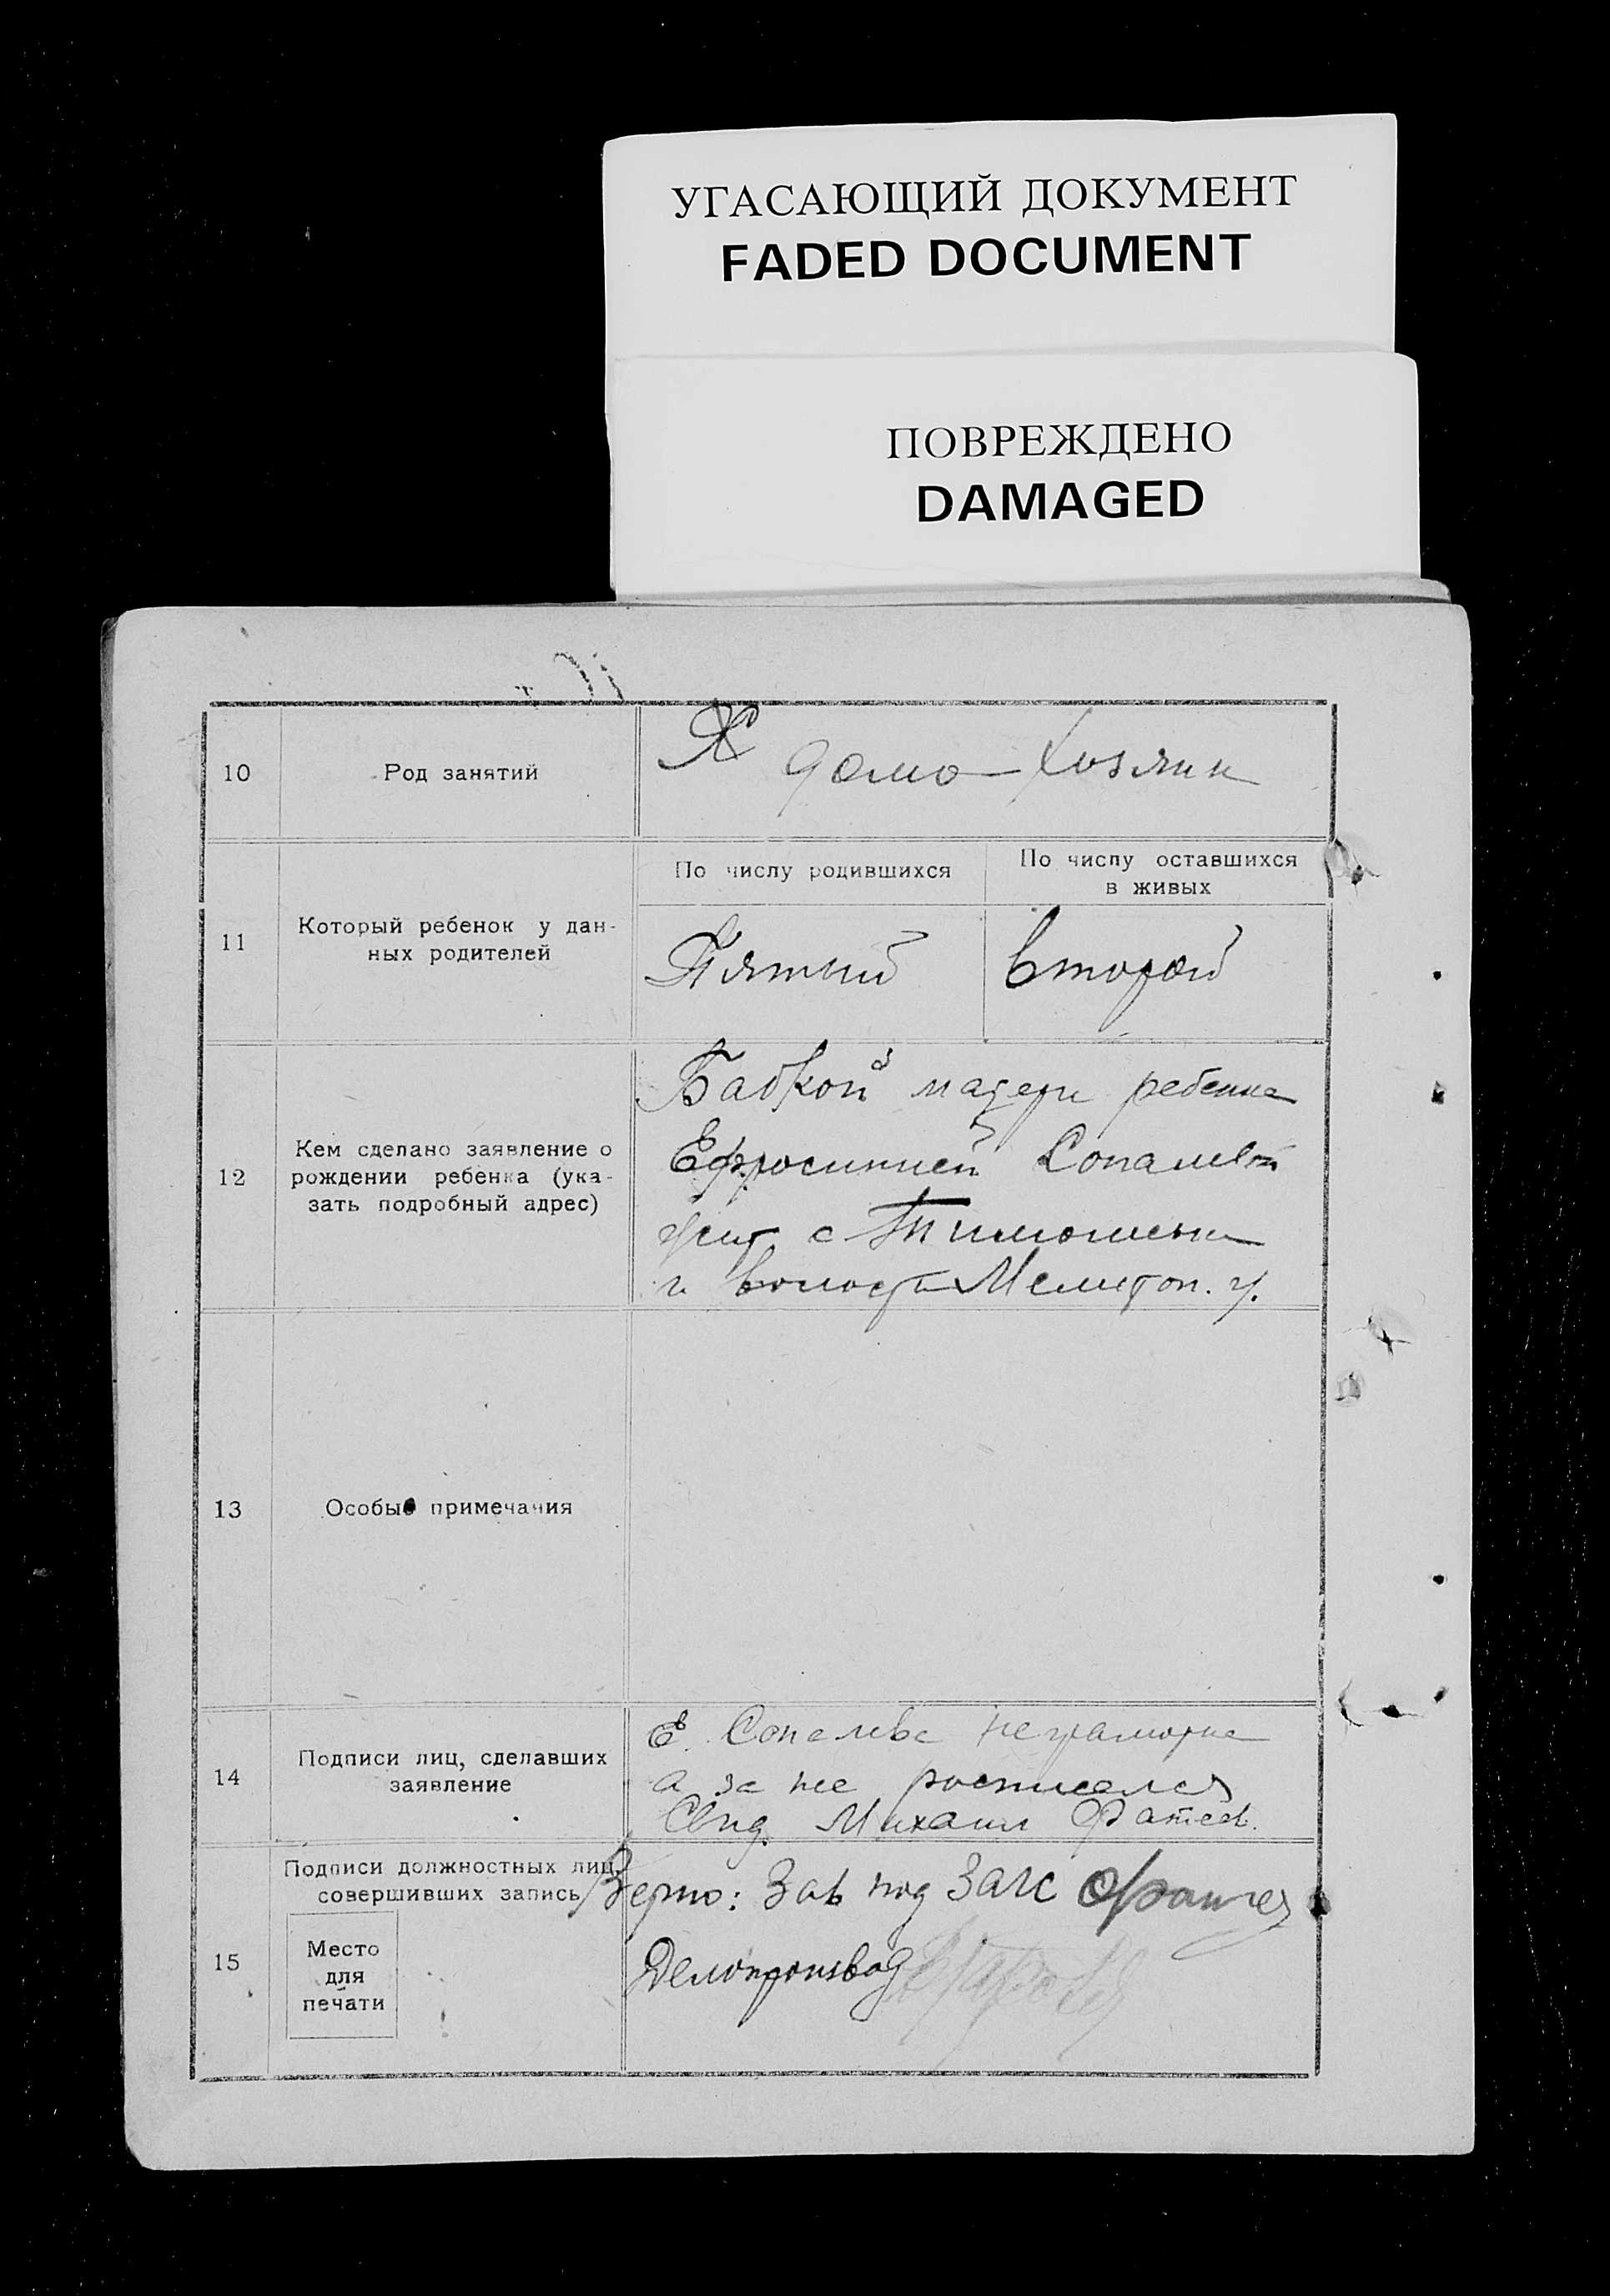 УГАСАЮЩИЙ ДОКУМЕНТ
FADED DOCUMENT
ПОВРЕЖДЕНО
DAMAGED
10
Род занятий
домо-хозяин
11
Который ребенок у дан-
ных родителей
По числу родившихся
По числу оставшихся
в живых
Пятый
второй
12
Кем сделано заявление о
рождении ребенка (ука-
зать подробный адрес)
Бабкой матери ребенка
Ефросинией
жит с Тимошевки
волости Мелитоп. у.
13
Особые примечания
14
Подписи лиц, сделавших
заявление
Е. неграмотна
а за нее росписался
Свид. Михаил Фатеев.
15
Подписи должностных лиц,
совершивших запись
Место
для
печати
Верно: Зав под Загс
Делопроизвод